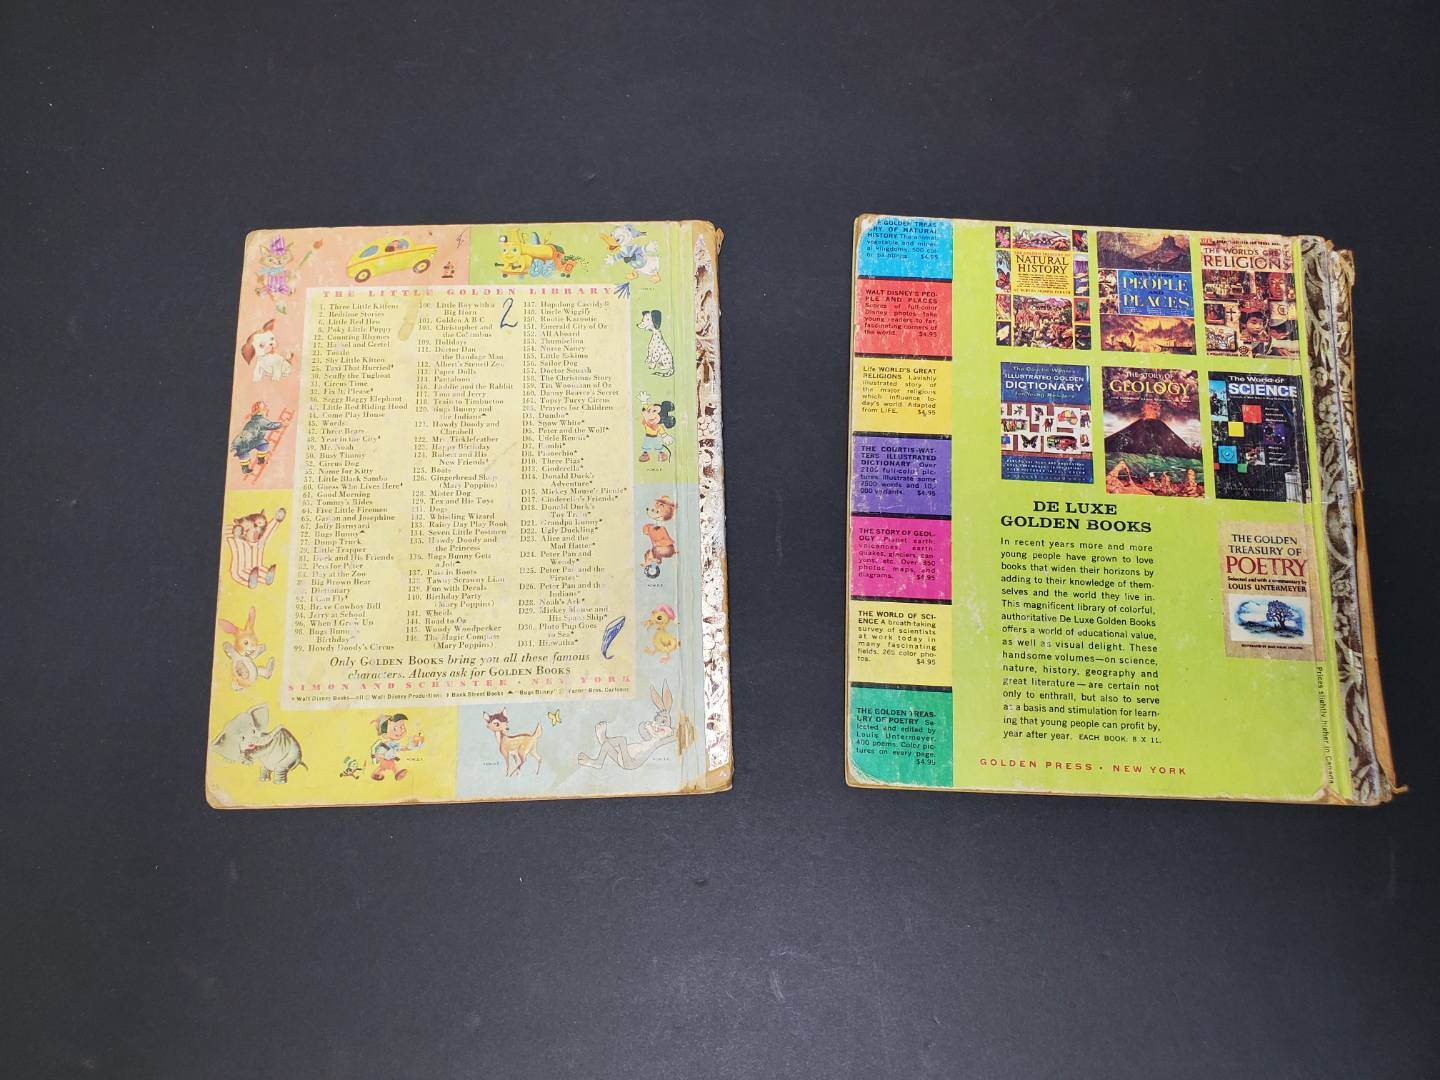 THE LITTLE GOLDEN LIBRARY
1. Three Little Kittens
2. Bedtime Stories
6. Little Red Hen
8. Poky Little Puppy
12. Counting Rhymes
17. Hansel and Gretel
21. Tootle
23. Shy Little Kitten
25. Taxi That Hurried*
30. Scuffy the Tugboat
31. Circus Time
32. Fix It, Please*
36. Saggy Baggy Elephant
42. Little Red Riding Hood
44. Come Play House
45. Words
47. Three Bears
48. Year in the City*
49. Mr. Noah
50. Busy Timmy
52. Circus Dog
55. Name for Kitty
57. Little Black Sambo
60. Guess Who Lives Here*
61. Good Morning
63. Tommy's Rides
64. Five Little Firemen
65. Gaston and Josephine
67. Jolly Barnyard
72. Bugs Bunny
77. Dump Truck
79. Little Trapper
81. Duck and His Friends
82. Pets for Peter
84. Day at the Zoo
89. Big Brown Bear
Dictionary
92. I Can Fly*
93. Brave Cowboy Bill
94. Jerry at School
96. When I Grow Up
98. Bugs Bunny's
Birthday
99. Howdy Doody's Circus
100. Little Boy with a
Big Horn
101. Golden A B C
103. Christopher and
the Columbus
109. Holidays
111. Doctor Dan
the Bandage Man
112. Albert's Stencil Zoo
113. Paper Dolls
114. Pantaloon
116. Laddie and the Rabbit
117. Tom and Jerry
118. Train to Timbuctoo
120. Bugs Bunny and
the Indians
121. Howdy Doody and
Clarabell
122. Mr. Ticklefeather
123. Happy Birthday
124. Robert and His
New Friends*
125. Boats
126. Gingerbread Shop
(Mary Poppins)
128. Mister Dog
129. Tex and His Toys
131. Dogs
132. Whistling Wizard
133. Rainy Day Play Book
134. Seven Little Postmen
135. Howdy Doody and
the Princess
136. Bugs Bunny Gets
a Job
137. Puss in Boots
138. Tawny Scrawny Lion
139. Fun with Decals
140. Birthday Party
(Mary Poppins)
141. Wheels
144. Road to Oz
145. Woody Woodpecker
146. The Magic Compass
(Mary Poppins)
147. Hopalong Cassidy
148. Uncle Wiggily
150. Rootie Kazootie
151. Emerald City of Oz
152. All Aboard
153. Thumbelina
154. Nurse Nancy
155. Little Eskimo
156. Sailor Dog
157. Doctor Squash
158. The Christmas Story
159. Tin Woodman of Oz
160. Danny Beaver's Secret
161. Topsy Turvy Circus
205. Prayers for Children
D3. Dumbo*
D4. Snow White*
D5. Peter and the Wolf*
D6. Uncle Remus*
D7. Bambi*
D8. Pinocchio*
D10. Three Pigs*
D13. Cinderella*
D14. Donald Duck's
Adventure*
D15. Mickey Mouse's Picnic*
D17. Cinderella's Friends*
D18. Donald Duck's
Toy Train*
D21. Grandpa Bunny*
D22. Ugly Duckling*
D23. Alice and the
Mad Hatter*
D24. Peter Pan and
Wendy*
D25. Peter Pan and the
Pirates*
D26. Peter Pan and the
Indians*
D28. Noah's Ark*
D29. Mickey Mouse and
His Space Ship*
D30. Pluto Pup Goes
to Sea*
D31. Hiawatha*
2
Only GOLDEN BOOKS bring you all these famous
characters. Always ask for GOLDEN BOOKS
SIMON AND SCHUSTER • NEW YORK
E GOLDEN TREAS-
URY OF NATURAL
HISTORY The animal,
vegetable and miner-
al kingdoms, 500 col-
or paintings. $4.95
WALT DISNEY'S PEO-
PLE AND PLACES
Scores of full-color
Disney photos take
young readers to far,
fascinating corners of
the world. $4.95
Life WORLD'S GREAT
RELIGIONS Lavishly
illustrated story of
the major religions
which influence to-
day's world. Adapted
from LIFE. $4.95
THE COURTIS-WAT-
TERS ILLUSTRATED
DICTIONARY Over
2100 full-color pic-
tures illustrate some
7500 words and 10,-
000 variants. $4.95
THE STORY OF GEOL-
OGY Planet earth,
volcanoes, earth-
quakes, glaciers, can-
yons, etc. Over 350
photos, maps, and
diagrams. $4.95
THE WORLD OF SCI-
ENCE A breath-taking
survey of scientists
at work today in
many fascinating
fields. 265 color pho-
tos. $4.95
THE GOLDEN TREAS-
URY OF POETRY Se-
lected and edited by
Louis Untermeyer.
400 poems. Color pic-
tures on every page.
$4.95
NATURAL
HISTORY
Walt Disney's
PEOPLE
AND
PLACES
THE WORLD'S GREAT
RELIGIONS
The Courtis-Watters
ILLUSTRATED GOLDEN
DICTIONARY
for Young Readers
THE STORY OF
GEOLOGY
The World of
SCIENCE
DE LUXE
GOLDEN BOOKS
In recent years more and more
young people have grown to love
books that widen their horizons by
adding to their knowledge of them-
selves and the world they live in.
This magnificent library of colorful,
authoritative De Luxe Golden Books
offers a world of educational value,
as well as visual delight. These
handsome volumes—on science,
nature, history, geography and
great literature—are certain not
only to enthrall, but also to serve
as a basis and stimulation for learn-
ing that young people can profit by,
year after year. EACH BOOK: 8 X 11.
THE GOLDEN
TREASURY OF
POETRY
Selected and with a commentary by
LOUIS UNTERMEYER
Prices slightly higher in Canada
GOLDEN PRESS • NEW YORK